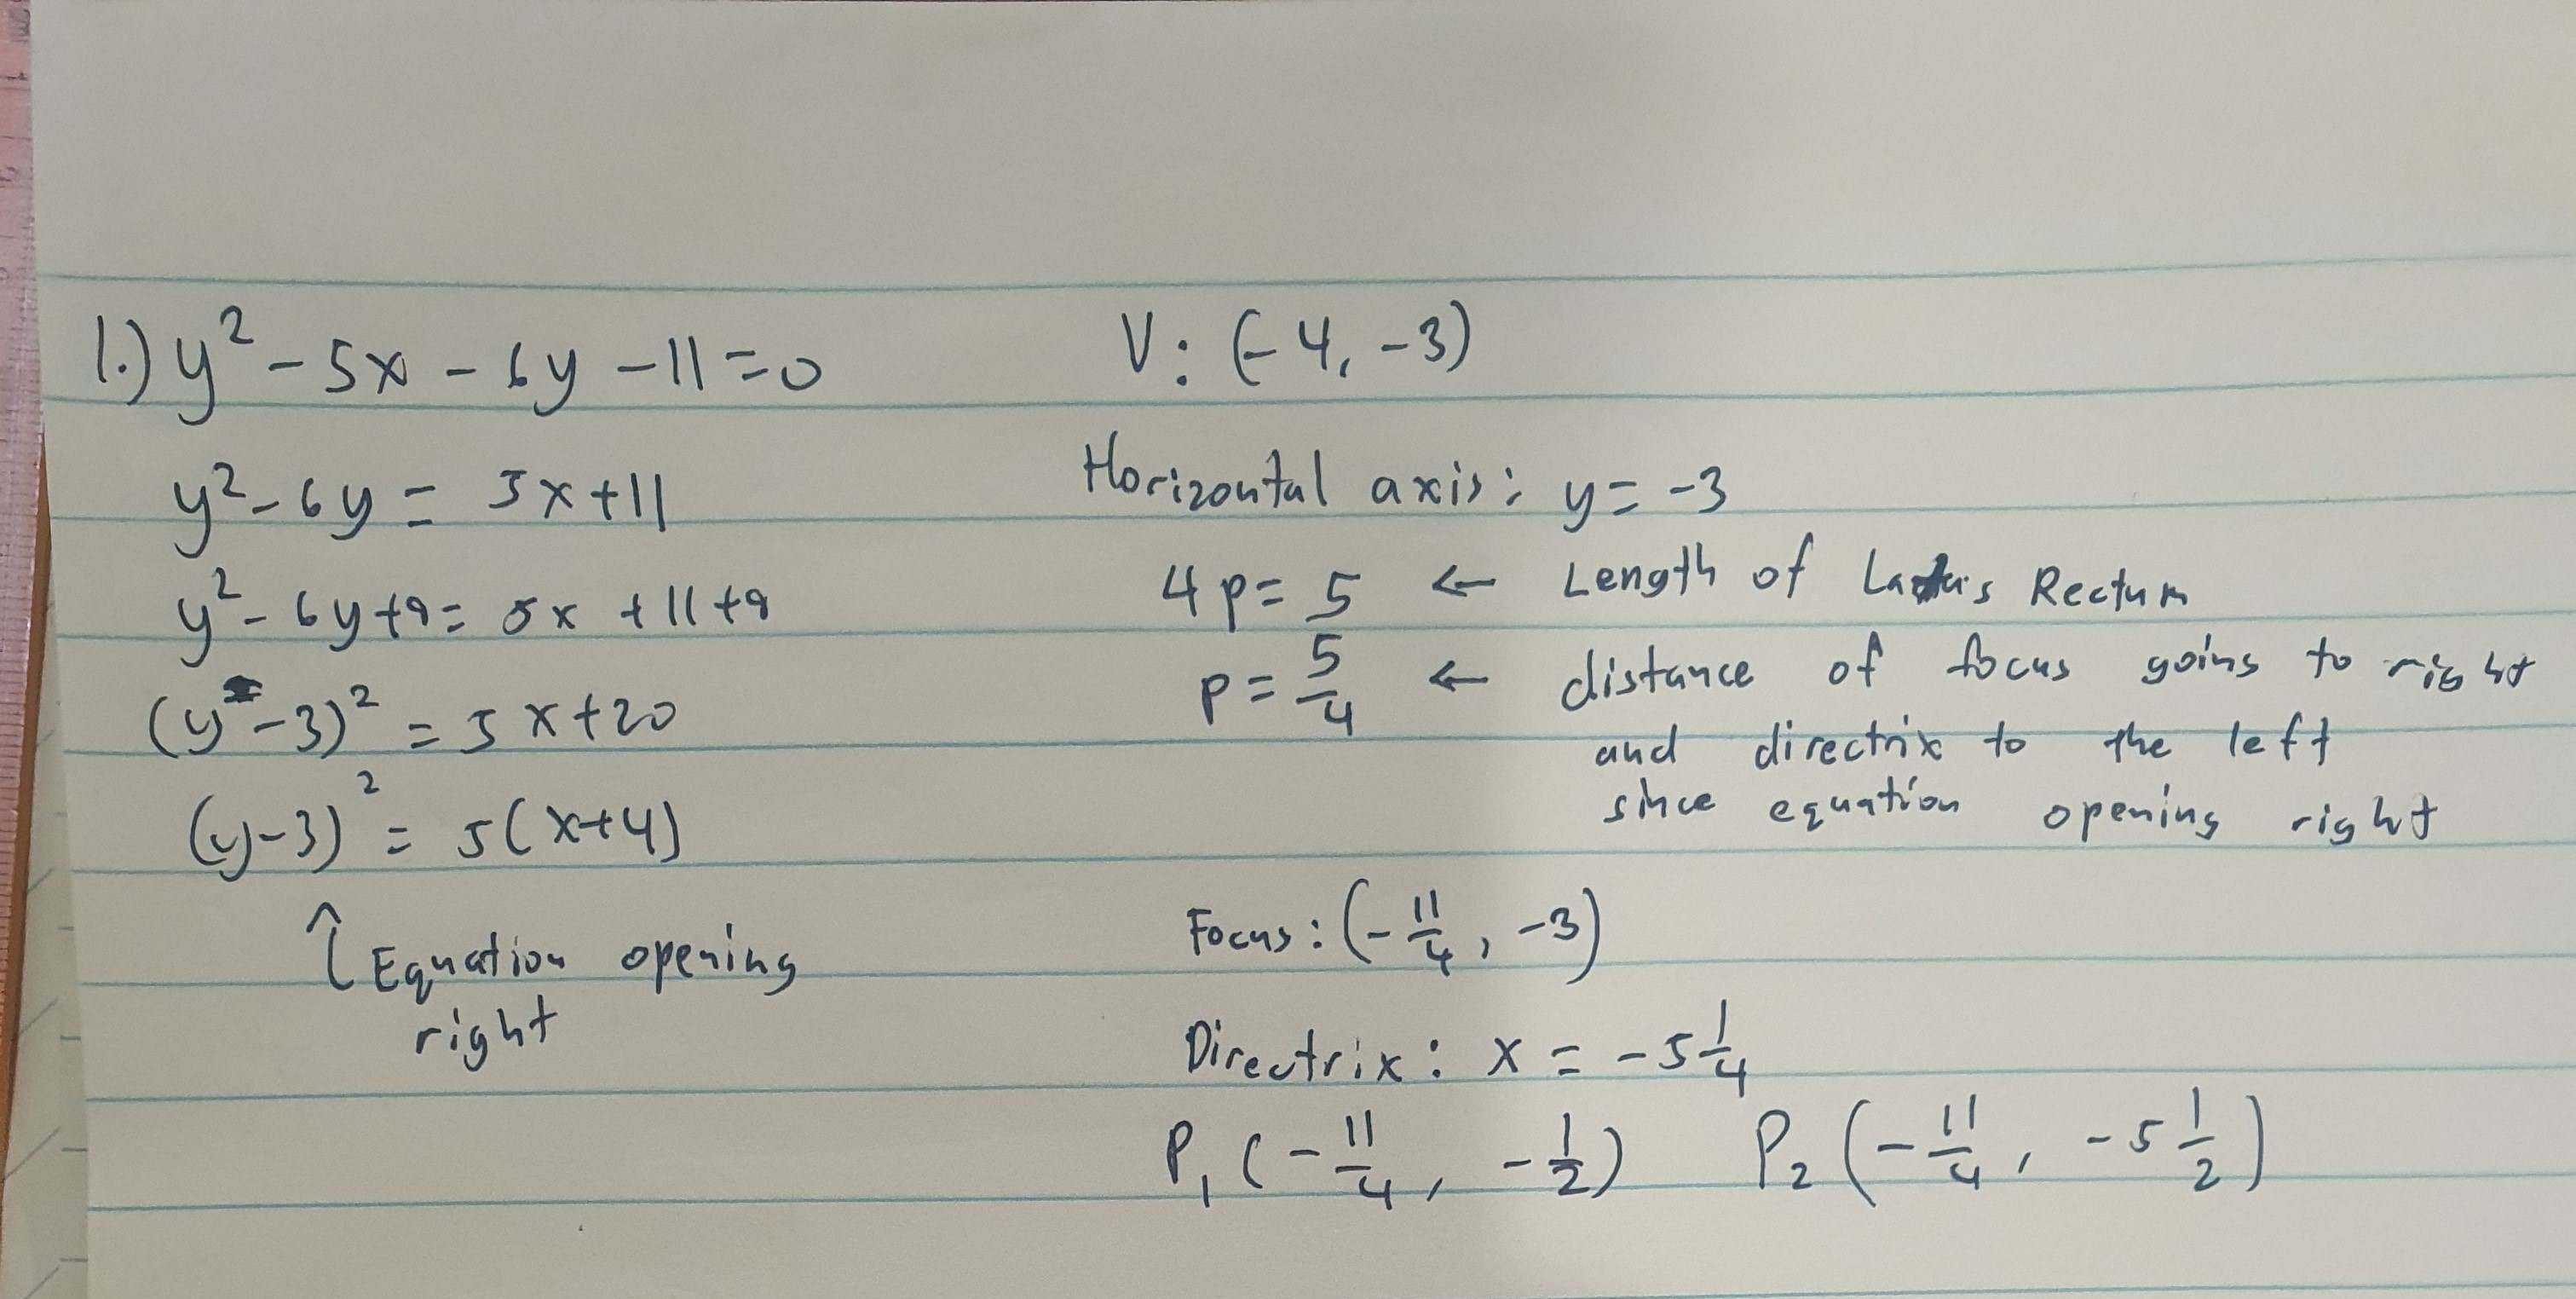 1.) y² - 5x - 6y - 11 = 0
y² - 6y = 5x + 11
y² - 6y + 9 = 5x + 11 + 9
(y - 3)² = 5x + 20
(y - 3)² = 5(x + 4)
↑ Equation opening
right
V: (-4, -3)
Horizontal axis: y = -3
4p = 5 ← Length of Latus Rectum
p = 5/4 ← distance of focus going to right
and directrix to the left
since equation opening right
Focus: (-11/4, -3)
Directrix: x = -5 1/4
P₁ (-11/4, -1/2) P₂ (-11/4, -5 1/2)